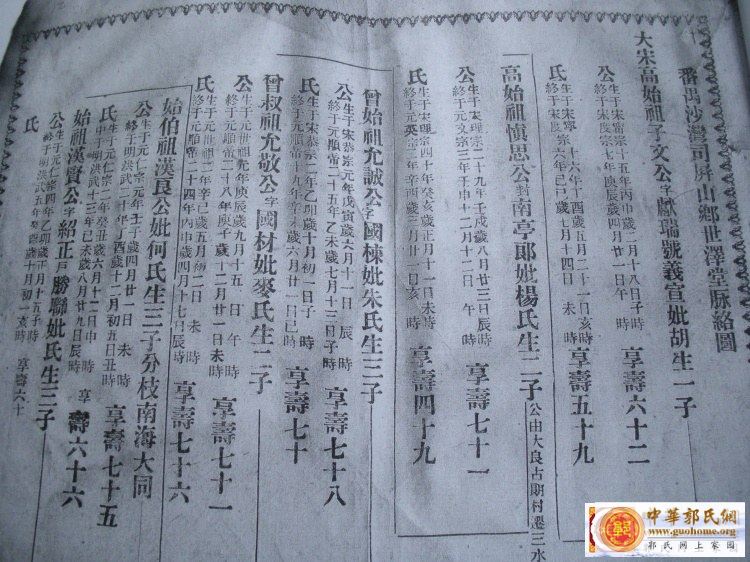 番禺沙灣司屏山鄉世澤堂脉絡圖
大宋高始祖子文公字獻瑞號義宣妣胡生一子
公生于宋寧宗十五年丙申歲二月十八日子時
終于宋度宗七年庚午歲四月廿一日午時
享壽六十二
氏生于宋寧宗十六年丁酉歲五月二十一日亥時
終于宋度宗六年己巳歲七月十四日未時
享壽五十九
高始祖慎思公封南亭郎妣楊氏生二子
公由大良占期村遷三水
公生于宋理宗二十九年壬戌歲八月廿三日辰時
終于元文宗三年壬申十二月十二日午時
享壽七十一
氏生于宋理宗四十年癸亥歲正月廿一日未時
終于元英宗二年辛酉歲三月廿二日亥時
享壽四十九
曾始祖允誠公字國棟妣朱氏生三子
公生于宋恭宗元年戊寅歲六月十一日辰時
終于元順帝二十五年乙未歲七月十三日子時
享壽七十八
氏生于宋恭宗二年乙卯歲十月初一日子時
終于元順帝十九年歲六月廿一日巳時
享壽七十
曾叔祖允敬公字國材妣麥氏生二子
公生于元世祖元年庚辰歲九月十五日午時
終于元順帝二十八年庚午歲十二月廿一日未時
享壽七十一
氏生于元世祖二年辛巳歲五月初二日未時
終于元順帝二十四年丙申歲四月十七日辰時
享壽七十六
始伯祖漢良公妣何氏生三子分枝南海大同
公生于元仁宗元年壬子歲四月廿一日未時
終于明洪武二十年丁酉歲十二月初五日丑時
享壽七十五
氏生于元仁宗二年癸丑歲六月十二日申時
終于明洪武十三年己未歲八月初九日辰時
享壽六十六
始祖漢賢公字紹正戶勝聯妣氏生三子
公生于元仁宗四年乙卯歲正月十五子時
終于明洪武五年癸歲十月初一亥時
享壽六十
氏
中華郭氏網
www.guohome.org
郭氏網上家園